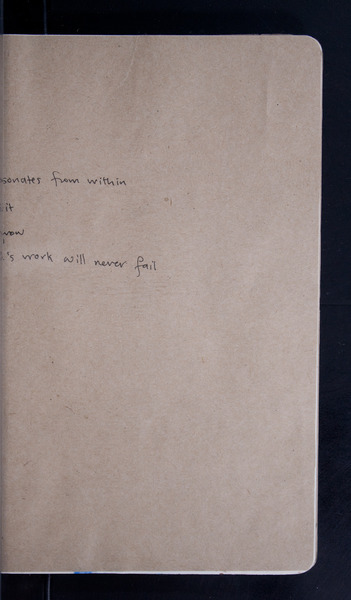 sonates from within
it
now
's work will never fail